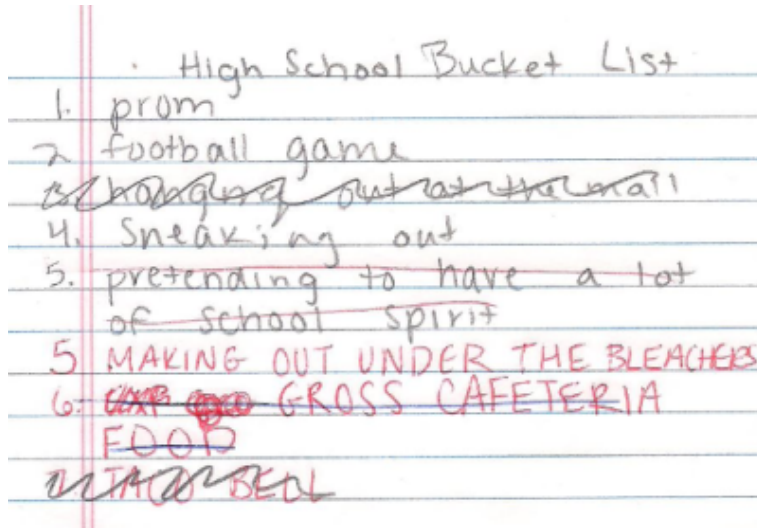 High School Bucket List
1. prom
2 football game
3. hanging out at the mall
4. Sneaking out
5. pretending to have a lot
of school spirit
5 MAKING OUT UNDER THE BLEACHERS
6. GROSS CAFETERIA
FOOD
7. TACO BELL